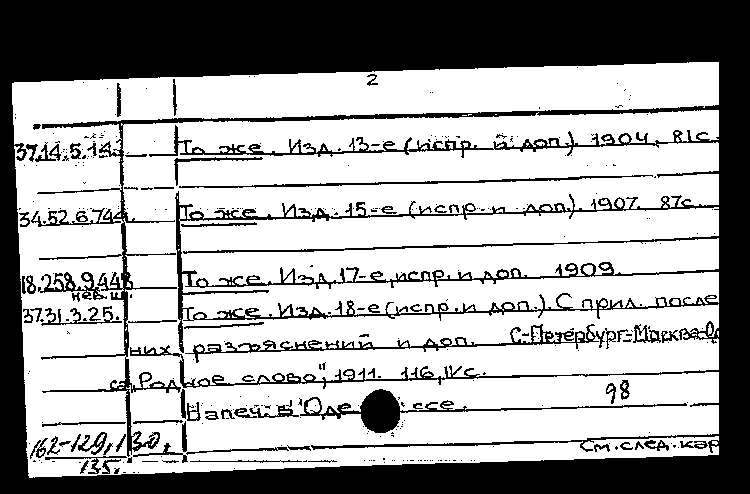 2
37.14.5.14. То же. Изд. 13-е (испр. и доп.). 1904, 81с.
34.52.6.744. То же. Изд. 15-е (испр. и доп.). 1907. 87с.
18.258.9.448 То же. Изд. 17-е, испр. и доп. 1909.
37.31.3.25. То же. Изд. 18-е (испр. и доп.). С прил. после
них разъяснений и доп. С-Петербург-Москва-Од
"Родное слово", 1911. 116, IV с.
Напеч. в Оде ссе. 98
162-129, 130.
135.
См. след. кар